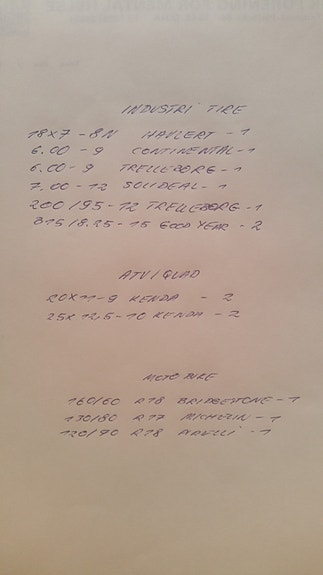 INDUSTRI TIRE
18X7 - 8N HAULERT - 1
6.00 - 9 CONTINENTAL - 1
6.00 - 9 TRELLEBORG - 1
7.00 - 12 SOLIDEAL - 1
200/95 - 12 TRELLEBORG - 1
815/8.25 - 15 GOOD YEAR - 2
ATV/QUAD
20X11-9 KENDA - 2
25X12,5-10 KENDA - 2
MOTO
160/60 R18 BRIDGESTONE - 1
130/80 R17 MICHELIN - 1
120/70 R18 PIRELLI - 1